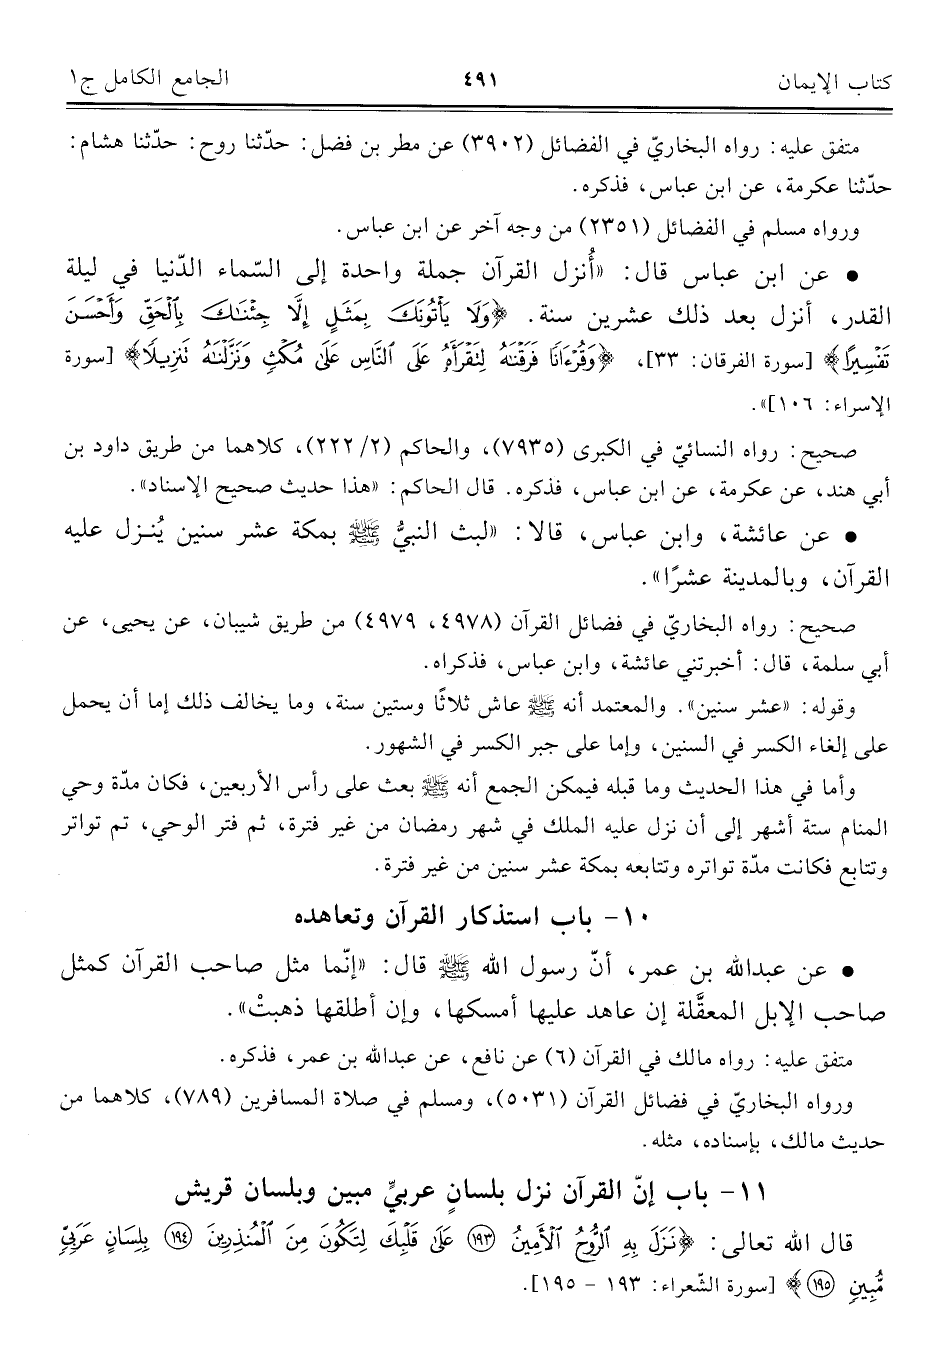 كتاب الإيمان ٤٩١ الجامع الكامل ج١
متفق عليه: رواه البخاريّ في الفضائل (٣٩٠٢) عن مطر بن فضل: حدّثنا روح: حدّثنا هشام:
حدّثنا عكرمة، عن ابن عباس، فذكره.
ورواه مسلم في الفضائل (٢٣٥١) من وجه آخر عن ابن عباس.
● عن ابن عباس قال: «أُنزل القرآن جملة واحدة إلى السّماء الدّنيا في ليلة
القدر، أنزل بعد ذلك عشرين سنة. ﴿وَلَا يَأْتُونَكَ بِمَثَلٍ إِلَّا جِئْنَٰكَ بِٱلْحَقِّ وَأَحْسَنَ
تَفْسِيرًا﴾ [سورة الفرقان: ٣٣]، ﴿وَقُرْءَانًا فَرَقْنَٰهُ لِتَقْرَأَهُۥ عَلَى ٱلنَّاسِ عَلَىٰ مُكْثٍ وَنَزَّلْنَٰهُ تَنزِيلًا﴾ [سورة
الإسراء: ١٠٦]».
صحيح: رواه النسائيّ في الكبرى (٧٩٣٥)، والحاكم (٢/ ٢٢٢)، كلاهما من طريق داود بن
أبي هند، عن عكرمة، عن ابن عباس، فذكره. قال الحاكم: «هذا حديث صحيح الإسناد».
● عن عائشة، وابن عباس، قالا: «لبث النبيُّ ﷺ بمكة عشر سنين يُنـزل عليه
القرآن، وبالمدينة عشرًا».
صحيح: رواه البخاريّ في فضائل القرآن (٤٩٧٨، ٤٩٧٩) من طريق شيبان، عن يحيى، عن
أبي سلمة، قال: أخبرتني عائشة، وابن عباس، فذكراه.
وقوله: «عشر سنين». والمعتمد أنه ﷺ عاش ثلاثًا وستين سنة، وما يخالف ذلك إما أن يحمل
على إلغاء الكسر في السنين، وإما على جبر الكسر في الشهور.
وأما في هذا الحديث وما قبله فيمكن الجمع أنه ﷺ بعث على رأس الأربعين، فكان مدّة وحي
المنام ستة أشهر إلى أن نزل عليه الملك في شهر رمضان من غير فترة، ثم فتر الوحي، ثم تواتر
وتتابع فكانت مدّة تواتره وتتابعه بمكة عشر سنين من غير فترة.
١٠- باب استذكار القرآن وتعاهده
● عن عبدالله بن عمر، أنّ رسول الله ﷺ قال: «إنّما مثل صاحب القرآن كمثل
صاحب الإبل المعقَّلة إن عاهد عليها أمسكها، وإن أطلقها ذهبتْ».
متفق عليه: رواه مالك في القرآن (٦) عن نافع، عن عبدالله بن عمر، فذكره.
ورواه البخاريّ في فضائل القرآن (٥٠٣١)، ومسلم في صلاة المسافرين (٧٨٩)، كلاهما من
حديث مالك، بإسناده، مثله.
١١- باب إنّ القرآن نزل بلسانٍ عربيٍّ مبين وبلسان قريش
قال الله تعالى: ﴿نَزَلَ بِهِ ٱلرُّوحُ ٱلْأَمِينُ ١٩٣ عَلَىٰ قَلْبِكَ لِتَكُونَ مِنَ ٱلْمُنذِرِينَ ١٩٤ بِلِسَانٍ عَرَبِيٍّ
مُّبِينٍ ١٩٥﴾ [سورة الشّعراء: ١٩٣ - ١٩٥].